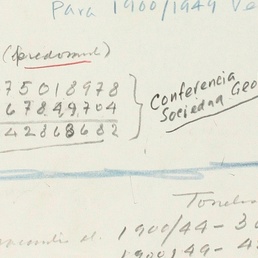 Para 1900/1949 Ve
(predomul)
75018978
67849704
42868682
Conferencia
Sociedad Geo
Tonela
1900/44 - 3
1900/49 - 4